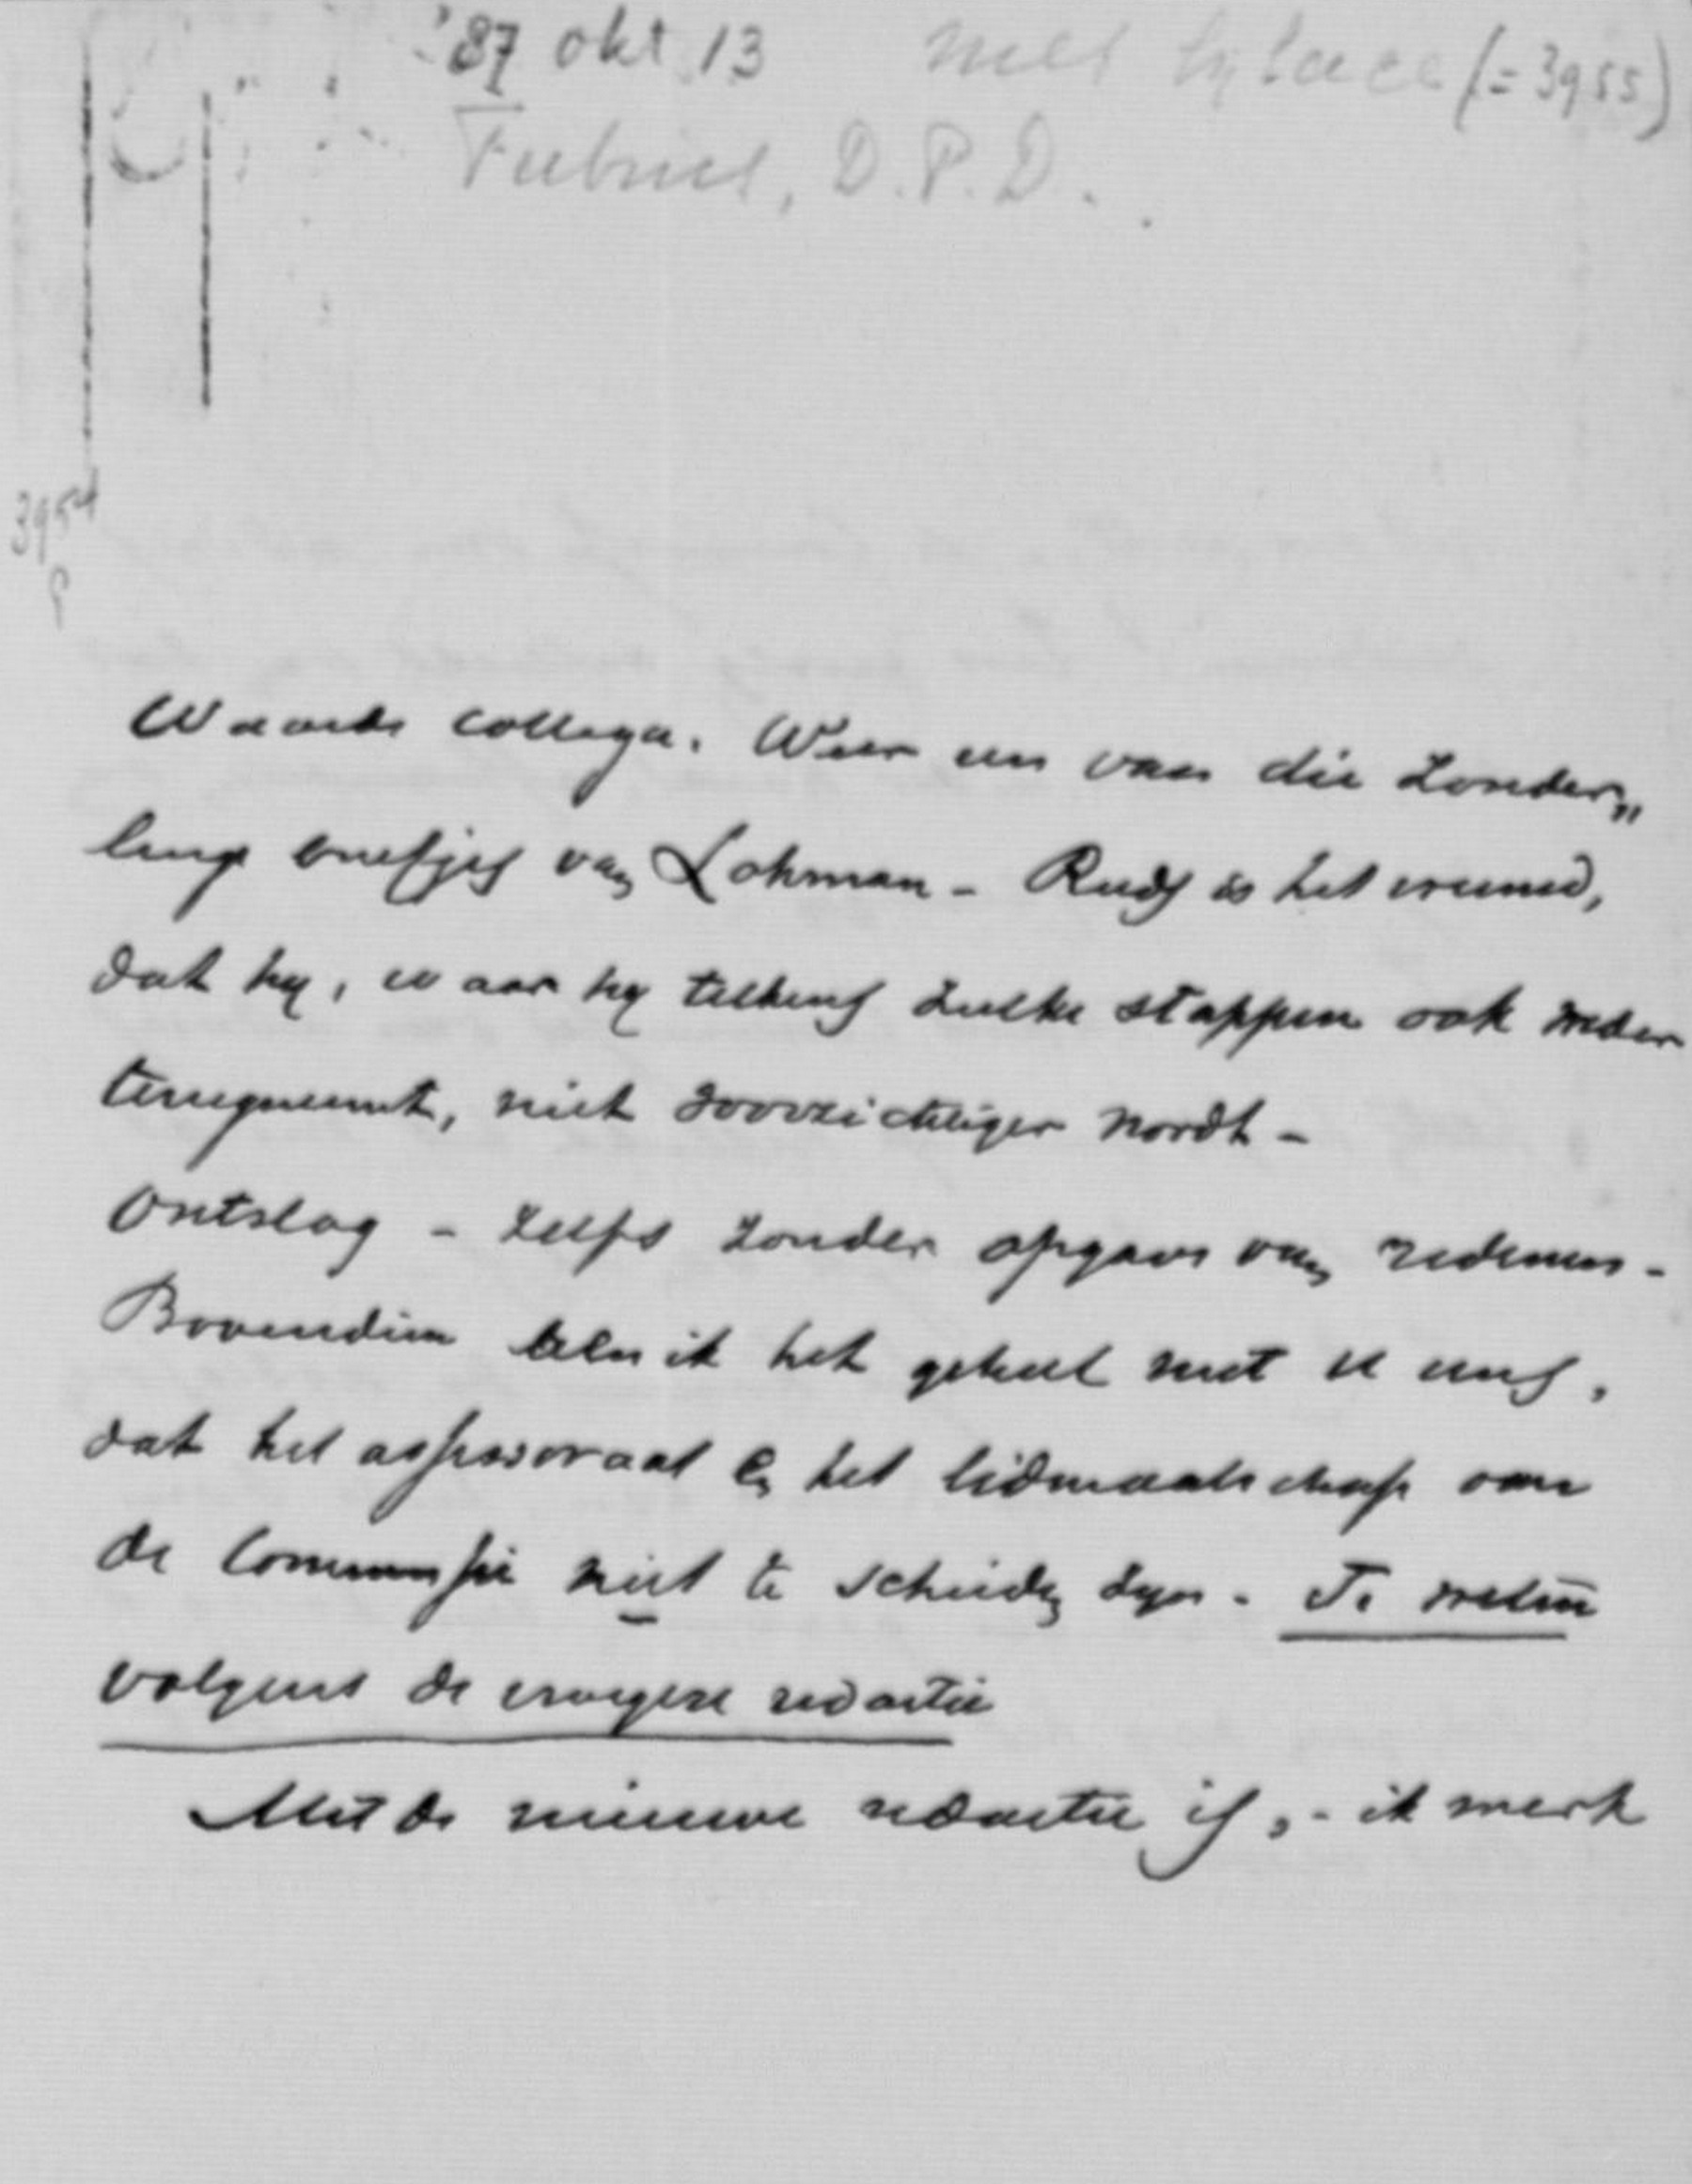 '87 okt 13 met bylage (= 3955)
Fabius, D.P.D.
3954
Waarde collega. Weer een van die zonder„
linge briefjes van Lohman - Reeds is het vreemd,
dat hy, waar hy telkens zulke stappen ook weder
terugneemt, niet voorzichtiger wordt -
Ontslag - zelfs zonder opgave van redenen -
Bovendien ben ik het geheel met u eens,
dat het assessoraat en het lidmaatschap van
de Commissie niet te scheiden zyn. Te weten
volgens de vroegere redactie
Met de nieuwe redactie is, - ik merk